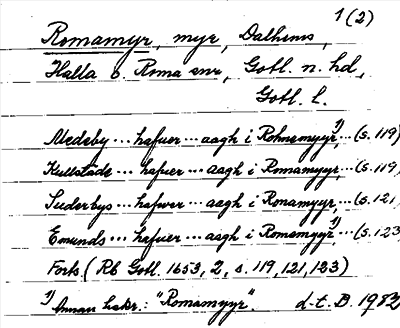 1(2)
Romamyr, myr, Dalhems,
Halla o. Roma snr, Gotl. n. hd,
Gotl. l.
Medeby ... hafuer ... aagh i Rohnemyyr,1) ... (s. 119)
Kullstäde ... hafuer ... aagh i Romamyyr, ... (s. 119,
Suderbys ... hafwer ... aagh i Romamyyr, ... (s. 121,
Emunds ... hafuer ... aagh i Romamyyr1) ... (s. 123
Forts. (Rb Gotl. 1653, 2, s. 119, 121, 123)
1) Annan hskr.: "Romamyyr". d.t. B. 1983